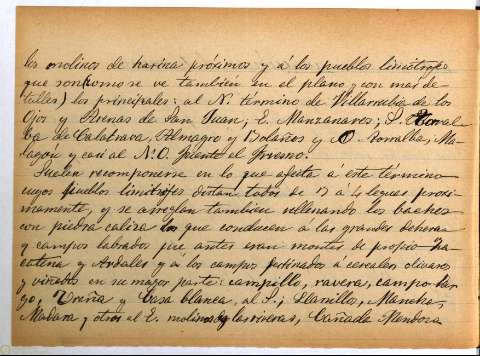 los molinos de harina próximos y a los pueblos limítrofes
que son (como se ve también en el plano y con mas de-
talles) los principales: al N. termino de Villarrubia de los
Ojos y Arenas de San Juan; E. Manzanares; S. Torral-
ba de Calatrava, Almagro y Bolaños y O Torralba, Ma-
lagon y casi al N.O. Fuente el Fresno.
Suelen recomponerse en lo que afecta á este término
cuyos pueblos limitrofes distan todos de 2 á 4 leguas proxi-
mamente, y se arreglan tambien rellenando los baches
con piedra caliza los que conducen a las grandes dehesas
y campos labrados que antes eran montes de propio
y Ardales y á los campos destinados á cereales, olivares
y viñedos en su mayor parte: campillo, ravera, campo-lar-
go, Ureña y Casa blanca, al S.; Llanillos, Mancha,
Madara y otros al E. molinos y las riveras, Cañada Mendoza